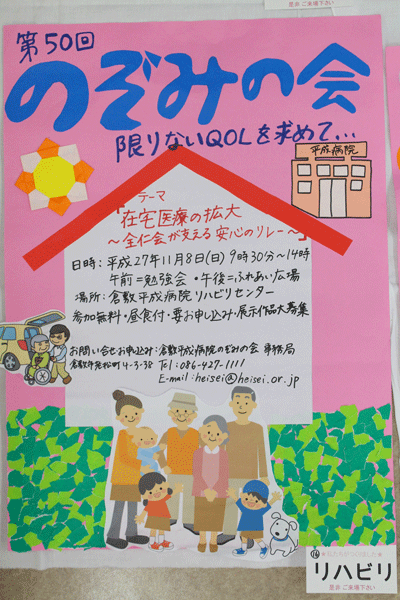 是非 ご来場下さい
第50回
のぞみの会
限りないQOLを求めて...
平成病院
テーマ
「在宅医療の拡大
～全仁会が支える安心のリレー～」
日時：平成27年11月8日(日) 9時30分～14時
午前=勉強会・午後=ふれあい広場
場所：倉敷平成病院リハビリセンター
参加無料・昼食付・要お申し込み・展示作品大募集
お問い合せお申込み：倉敷平成病院のぞみの会 事務局
倉敷市老松町4-3-38 Tel：086-427-1111
E-mail：heisei@heisei.or.jp
⑭
リハビリ
是非 ご来場下さい